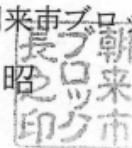 来市ブロ
昭
朝来市
ブロック
長之印